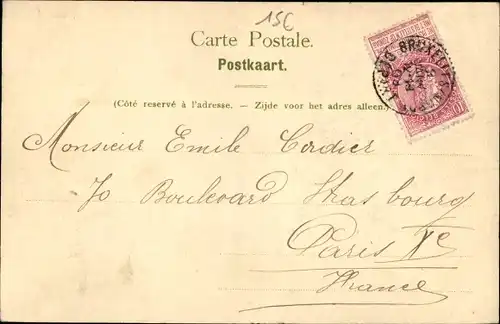 15€
Carte Postale.
Postkaart.
(Côté reservé à l'adresse. - Zijde voor het adres alleen.)
BRUXELLES
Monsieur Emile Cordier
70 Boulevard Strasbourg
Paris Xe
France